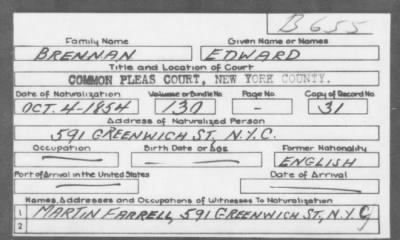 B 655
Family Name Given Name or Names
BRENNAN EDWARD
Title and Location of Court
COMMON PLEAS COURT, NEW YORK COUNTY.
Date of Naturalization Volume or Bundle No. Page No. Copy of Record No.
OCT. 4-1854 130 - 31
Address of Naturalized Person
591 GREENWICH ST, N.Y.C.
Occupation Birth Date or Age Former Nationality
ENGLISH
Port of Arrival in the United States Date of Arrival
Names, Addresses and Occupations of Witnesses To Naturalization
1 MARTIN FARRELL, 591 GREENWICH ST, N.Y.C
2